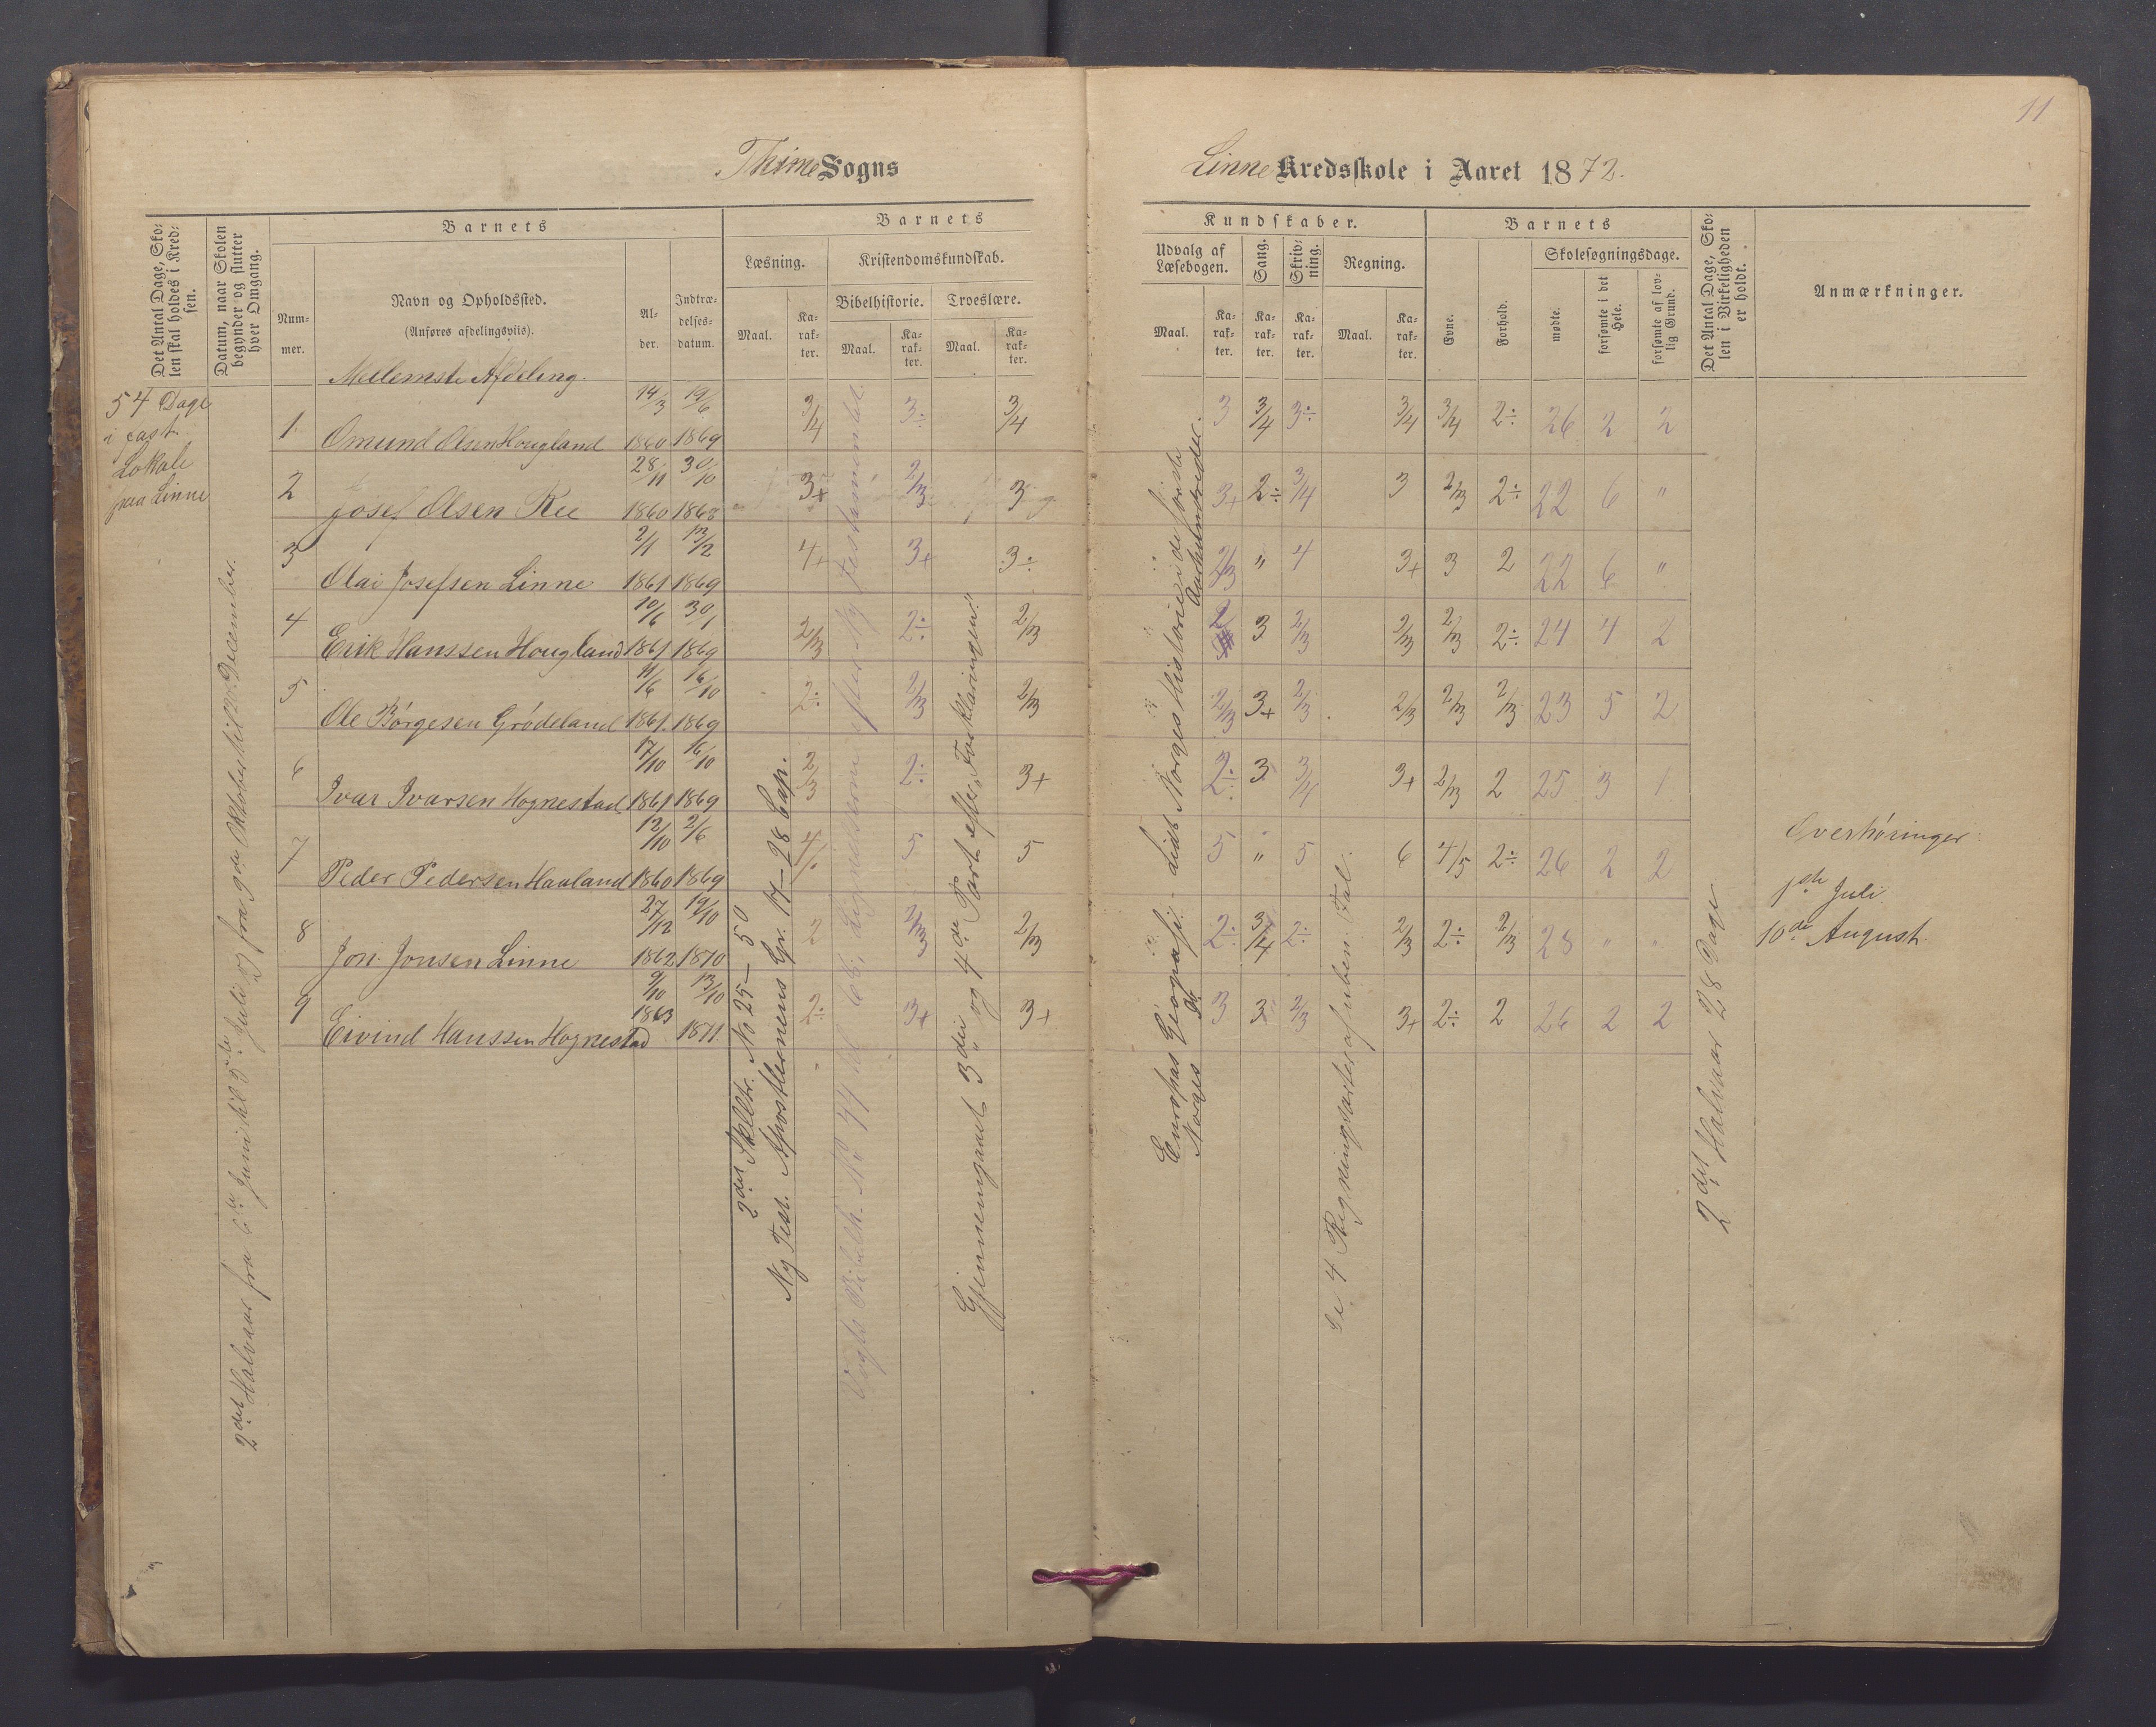 11
Thime Sogns
Linne Kredsskole i Aaret 1872.
Det Antal Dage, Sko-
len skal holdes i Kred-
sen.
Datum, naar Skolen
begynder og slutter
hver Omgang.
Barnets
Num-
mer.
Navn og Opholdssted.
(Anføres afdelingsviis).
Al-
der.
Indtræ-
delses-
datum.
Barnets
Læsning.
Maal.
Ka-
rak-
ter.
Kristendomskundskab.
Bibelhistorie.
Maal.
Ka-
rak-
ter.
Troeslære.
Maal.
Ka-
rak-
ter.
Kundskaber.
Udvalg af
Læsebogen.
Maal.
Ka-
rak-
ter.
Sang.
Ka-
rak-
ter.
Skriv-
ning.
Ka-
rak-
ter.
Regning.
Maal.
Ka-
rak-
ter.
Barnets
Evne.
Forhold.
Skolesøgningsdage.
mødte.
forsømte i det
Hele.
forsømte af lov-
lig Grund.
Det Antal Dage, Sko-
len i Virkeligheden
er holdt.
Anmærkninger.
54 Dage
i fast
Lokale
paa Linne
2det Halvaar fra 6te Juni til 5te Juli og fra 9de Oktober til December.
Mellemste Afdeling.
1. Omund Olsen Hougland 14/3 1860 19/6 1869 3/4 3÷ 3/4 3 3/4 3÷ 3/4 3/4 2÷ 26 2 2
2 Josef Olsen Ree 28/11 1860 30/10 1868 3+ 2/3 3 3+ 2÷ 3/4 3 2/3 2÷ 22 6 "
3 Olai Josefsen Linne 2/1 1861 13/2 1869 4+ 3+ 3÷ 2/3 " 4 3+ 3 2 22 6 "
4 Erik Hanssen Hougland 10/6 1861 30/1 1869 2/3 2÷ 2/3 3 2/3 2/3 2/3 2÷ 24 4 2
5 Ole Børgesen Grødeland 11/6 1861. 16/10 1869 2÷ 2/3 2/3 2/3 3+ 2/3 2/3 2/3 2/3 23 5 2
6 Ivar Ivarsen Hognestad 17/10 1861 16/10 1869 2/3 2÷ 3+ 2÷ 3 3/4 3+ 2/3 2 25 3 1
7 Peder Pedersen Haaland 12/10 1860 2/6 1869 5 5 5 " 5 6 4/5 2÷ 26 2 2
8 Jon Jonsen Linne 27/12 1862 19/10 1870 2 2/3 2/3 2÷ 3/4 2÷ 2/3 2÷ 2/3 28 " "
9 Eivind Hanssen Hognestad 9/10 1863 13/10 1871 2÷ 3+ 3+ 3 3 2/3 3+ 2÷ 2 26 2 2
2det Skoletr. No 25–50
Ny Test. Apostlernens Gr. 17–28 Cap.
Vogts Bibelh. No 44 til 66; Lignelserne efter Ny Testamentet
Gjennemgaaet 3die og 4de Part efter „Forklaringen."
Europas Geografi – Lidt Norges Historie i de første
Norges do Aarhundreder.
De 4 Regningsarter af uben. Tal.
2det Halvaar 28 Dage
Overhøringer:
1ste Juli
10de August.